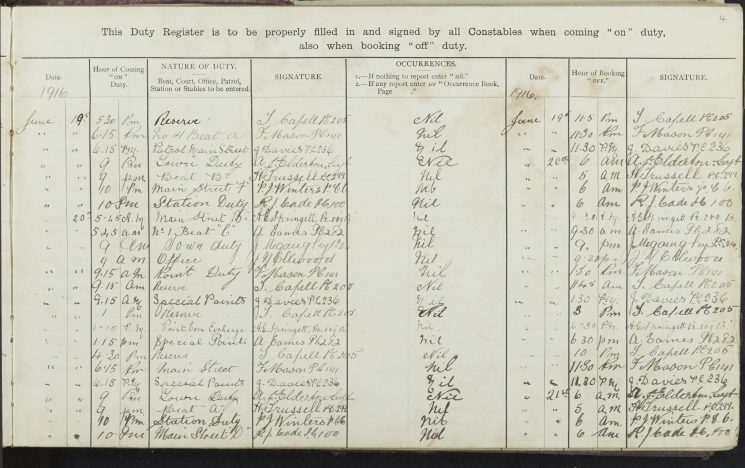 4
This Duty Register is to be properly filled in and signed by all Constables when coming "on" duty,
also when booking "off" duty.
Date. Hour of Coming "on" Duty. NATURE OF DUTY. Beat, Court, Office, Patrol, Station or Stables to be entered. SIGNATURE OCCURRENCES. 1.—If nothing to report enter "nil." 2.—If any report enter see "Occurrence Book, Page ." Date. Hour of Booking "OFF." SIGNATURE.
1916 1916
June 19th 5.30 Pm Reserve T. Capell PC 205 Nil June 19th 11.5 Pm T. Capell PC 205
" " 6.15 Pm No 4 Beat A F. Mason PC 141 Nil " " 11.30 Pm F. Mason PC 141
" " 6.15 P.M. Patrol Main Street J. Davies PC 236 Nil " " 11.30 P.M. J. Davies PC 236
" " 9 Pm Town Duty A. F. Elderton, Sergt Nil " 20th 6 am A. F. Elderton, Sergt
" " 9 pm Beat "B" H. Trussell PC 299 Nil " " 5 A.M H. Trussell PC 299
" " 10 Pm Main Street "F" P J Winters PC 66 Nil " " 6 am P J Winters PC 66
" " 10 Pm Station Duty R J Cade PC 100 Nil " " 6 am R J Cade PC 100
" 20th 5-45 A.M Main Street "B" A E Springett, Nil " " A E Springett,
" " 5.45 am No 1, Beat "C" A. Eames PC 282 Nil " " 9.30 am A. Eames PC 282
" " 9 Am Town duty Nil " " 9 pm
" " 9 am Office J N Ellwood Nil " " J N Ellwood
" " 9.15 am Point Duty F. Mason PC 141 Nil " " F. Mason PC 141
" " 9.15 Am Reserve T. Capell PC 205 Nil " " 11.45 am T. Capell PC 205
" " 9.15 A.M. Special Points J. Davies PC 236 Nil " " 1.30 P.M. J. Davies PC 236
" " 1 Pm Reserve T. Capell PC 205 Nil " " 3 Pm T. Capell PC 205
" " 1-15 P.M. Point Corn Exchange A E Springett, Nil " " 6-30 P.M. A E Springett,
" " 1.15 pm Special Points A. Eames PC 282 Nil " " 6.30 pm A. Eames PC 282
" " 4.30 Pm Reserve T. Capell PC 205 Nil " " 10 Pm T. Capell PC 205
" " 6.15 Pm Main Street F. Mason PC 141 Nil " " 11.30 Pm F. Mason PC 141
" " 6.15 P.M. Special Points J. Davies PC 236 Nil " " 11.30 P.M. J. Davies PC 236
" " 9 Pm Town Duty A. F. Elderton, Sergt Nil " 21st 6 am A. F. Elderton, Sergt
" " 9 pm Beat "A" H. Trussell PC 299 Nil " " 5 A.M H. Trussell PC 299
" " 10 Pm Station Duty P J Winters PC 66 Nil " " 6 am P J Winters PC 66
" " 10 Pm Main Street D R J Cade PC 100 Nil " " 6 am R J Cade PC 100